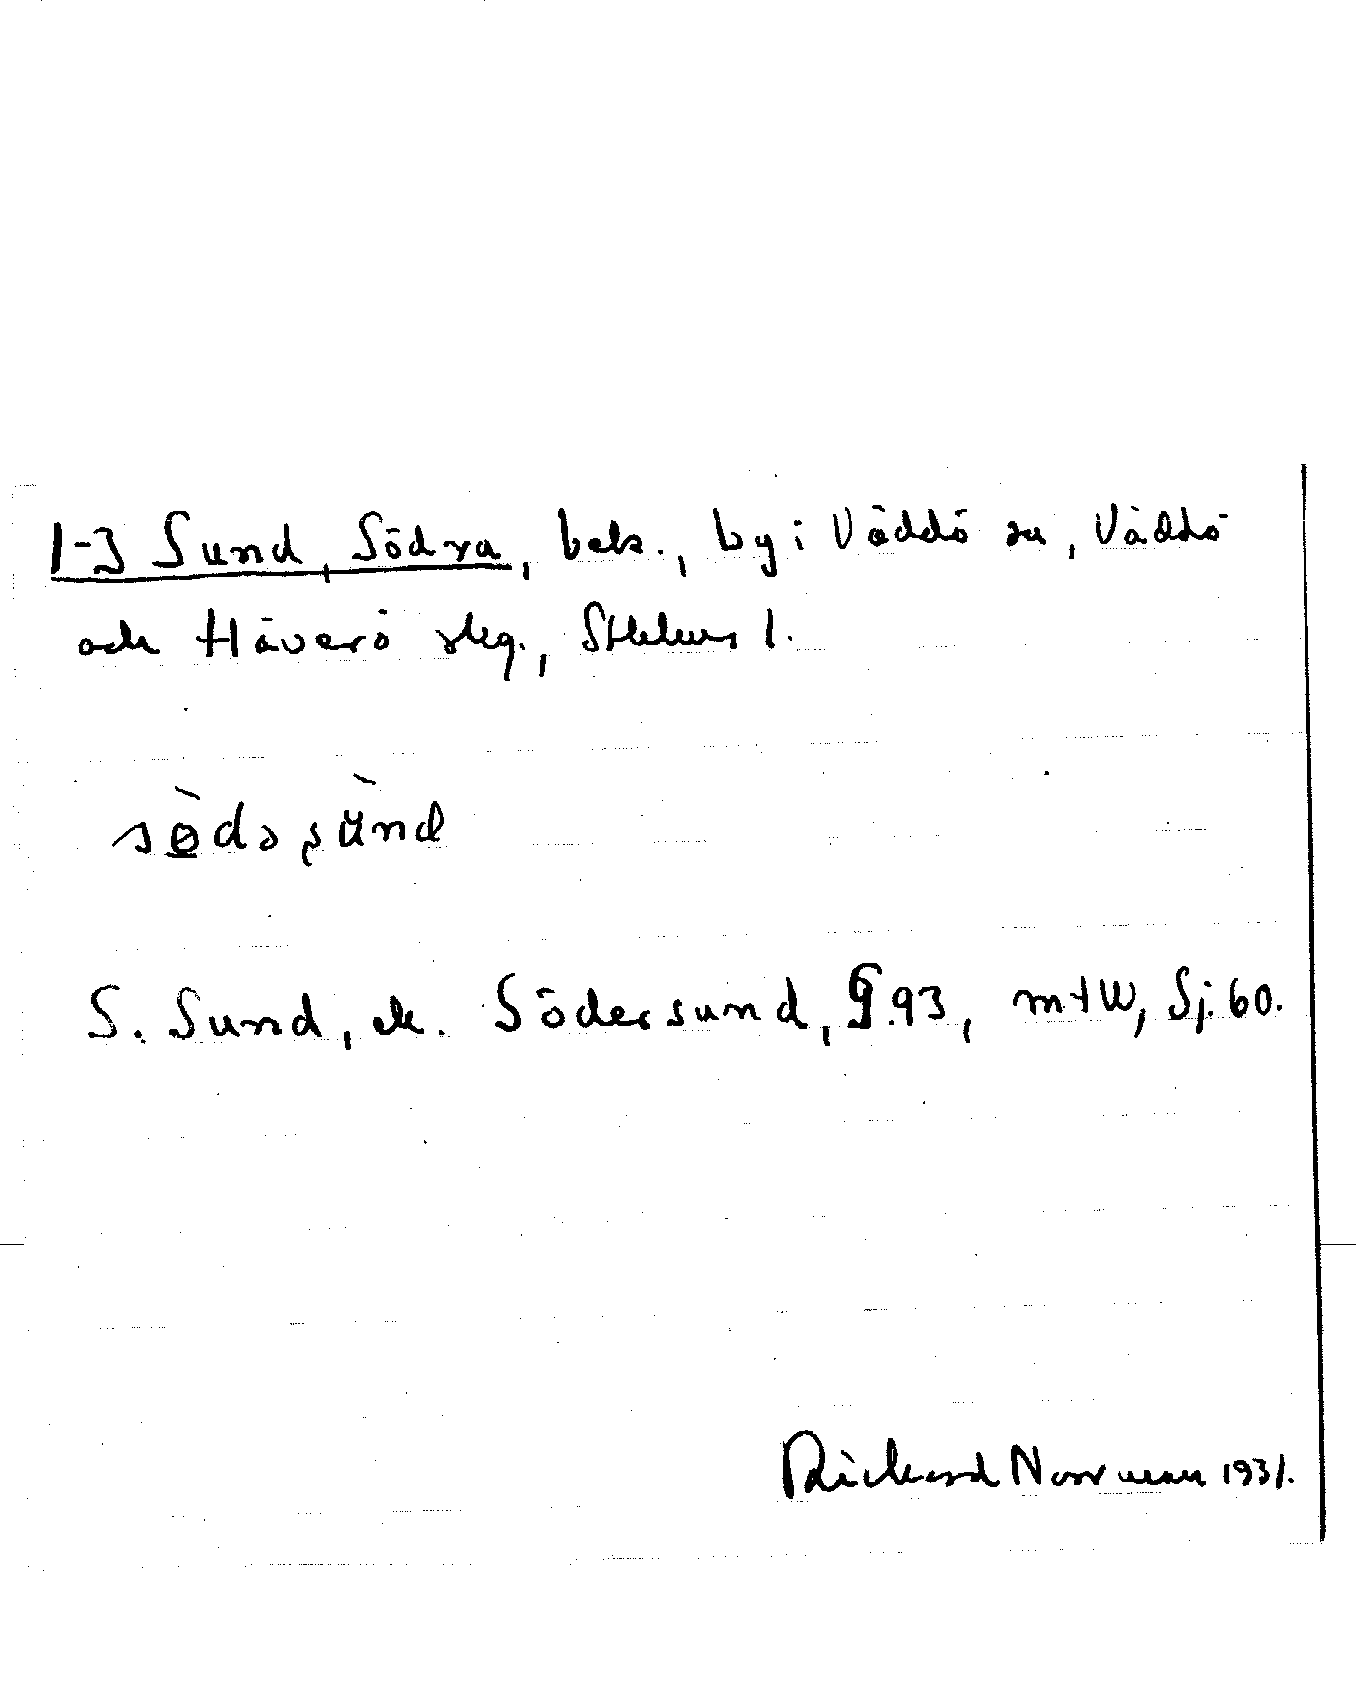 1-3 Sund, Södra, beb., by i Väddö sn, Väddö
och Häverö skg., Sthlms l.
sø̀dəʂùnd
S. Sund, ek. Södersund, G.93, mtW, Sj. 60.
Rickard Norrman 1931.